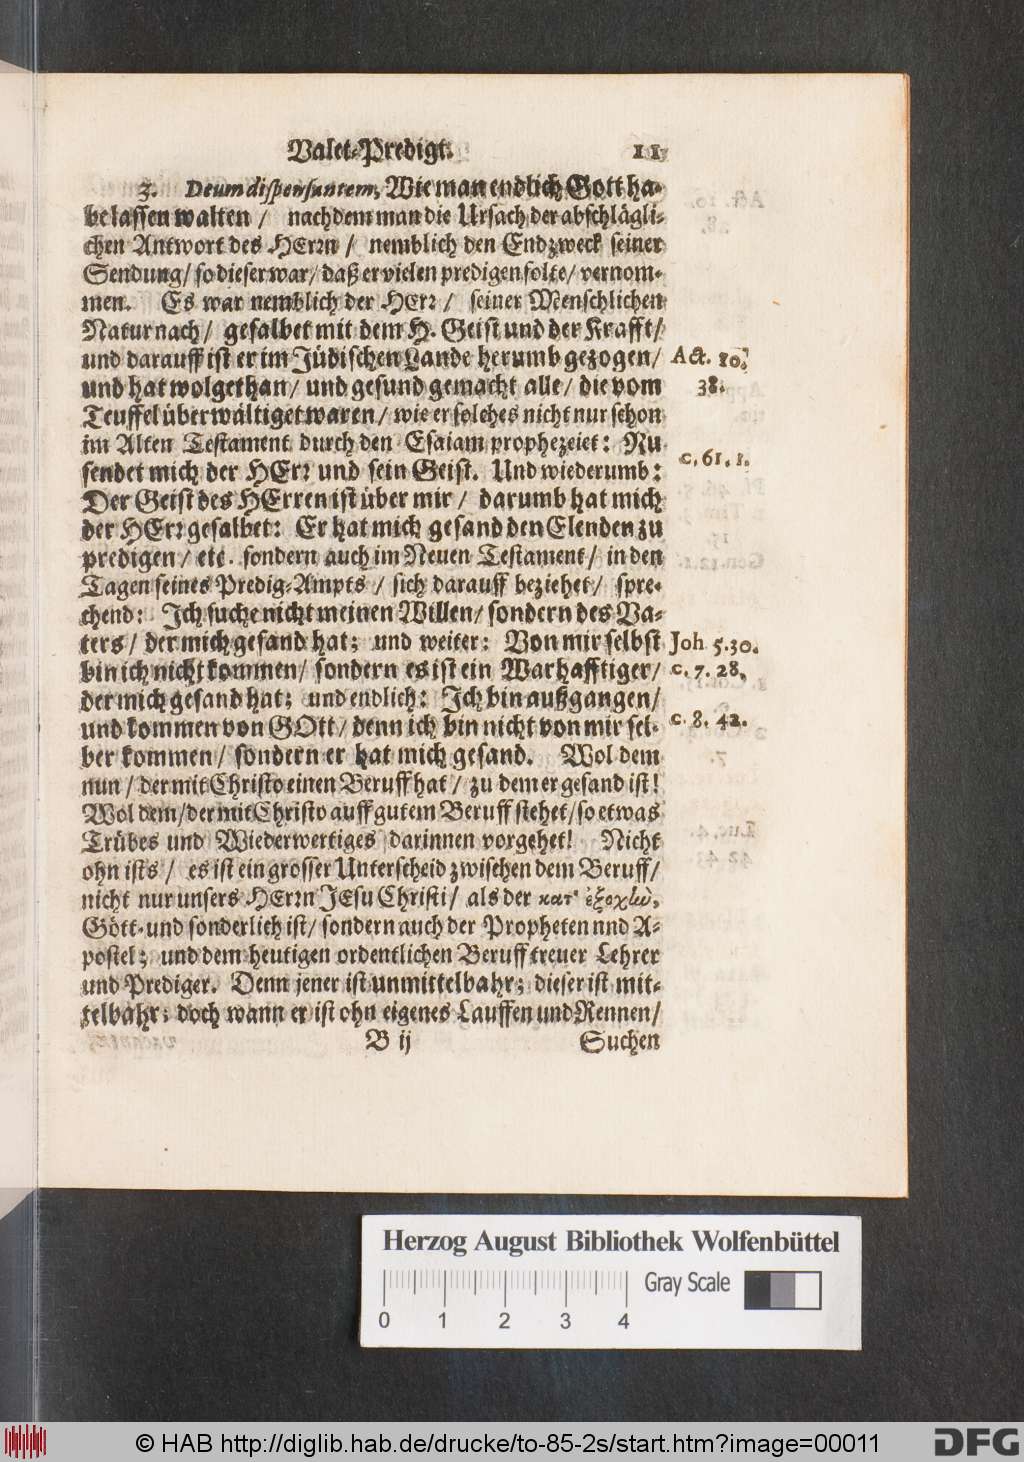 Valet-Predigt. 11
3. Deum dispensantem, Wie man endlich Gott ha-
be lassen walten / nachdem man die Ursach der abschlägli-
chen Antwort des HErrn / nemblich den Endzweck seiner
Sendung / so dieser war / daß er vielen predigen solte / vernom-
men. Es war nemblich der HErr / seiner Menschlichen
Natur nach / gesalbet mit dem H. Geist und der Krafft /
und darauff ist er im Jüdischen Lande herumb gezogen / Act. 10.
und hat wolgethan / und gesund gemacht alle / die vom 38.
Teuffel überwältiget waren / wie er solches nicht nur schon
im Alten Testament durch den Esaiam prophezeiet: Nu
sendet mich der HErr und sein Geist. Und wiederumb: c. 61. 1.
Der Geist des HErren ist über mir / darumb hat mich
der HErr gesalbet: Er hat mich gesand den Elenden zu
predigen / etc. sondern auch im Neuen Testament / in den
Tagen seines Predig-Ampts / sich darauff beziehet / spre-
chend: Ich suche nicht meinen Willen / sondern des Va-
ters / der mich gesand hat; und weiter: Von mir selbst Joh 5. 30.
bin ich nicht kommen / sondern es ist ein Warhafftiger / c. 7. 28.
der mich gesand hat; und endlich: Ich bin außgangen /
und kommen von GOtt / denn ich bin nicht von mir sel- c. 8. 42.
ber kommen / sondern er hat mich gesand. Wol dem
nun / der mit Christo einen Beruff hat / zu dem er gesand ist!
Wol dem / der mit Christo auff gutem Beruff stehet / so etwas
Trübes und Wiederwertiges darinnen vorgehet! Nicht
ohn ists / es ist ein grosser Unterscheid zwischen dem Beruff /
nicht nur unsers HErrn JEsu Christi / als der κατ' ἐξοχὴν,
Gött- und sonderlich ist / sondern auch der Propheten nnd A-
postel; und dem heutigen ordentlichen Beruff treuer Lehrer
und Prediger. Denn jener ist unmittelbahr; dieser ist mit-
telbahr; doch wann er ist ohn eigenes Lauffen und Rennen /
B ij Suchen
Herzog August Bibliothek Wolfenbüttel
Gray Scale
0 1 2 3 4
© HAB http://diglib.hab.de/drucke/to-85-2s/start.htm?image=00011
DFG